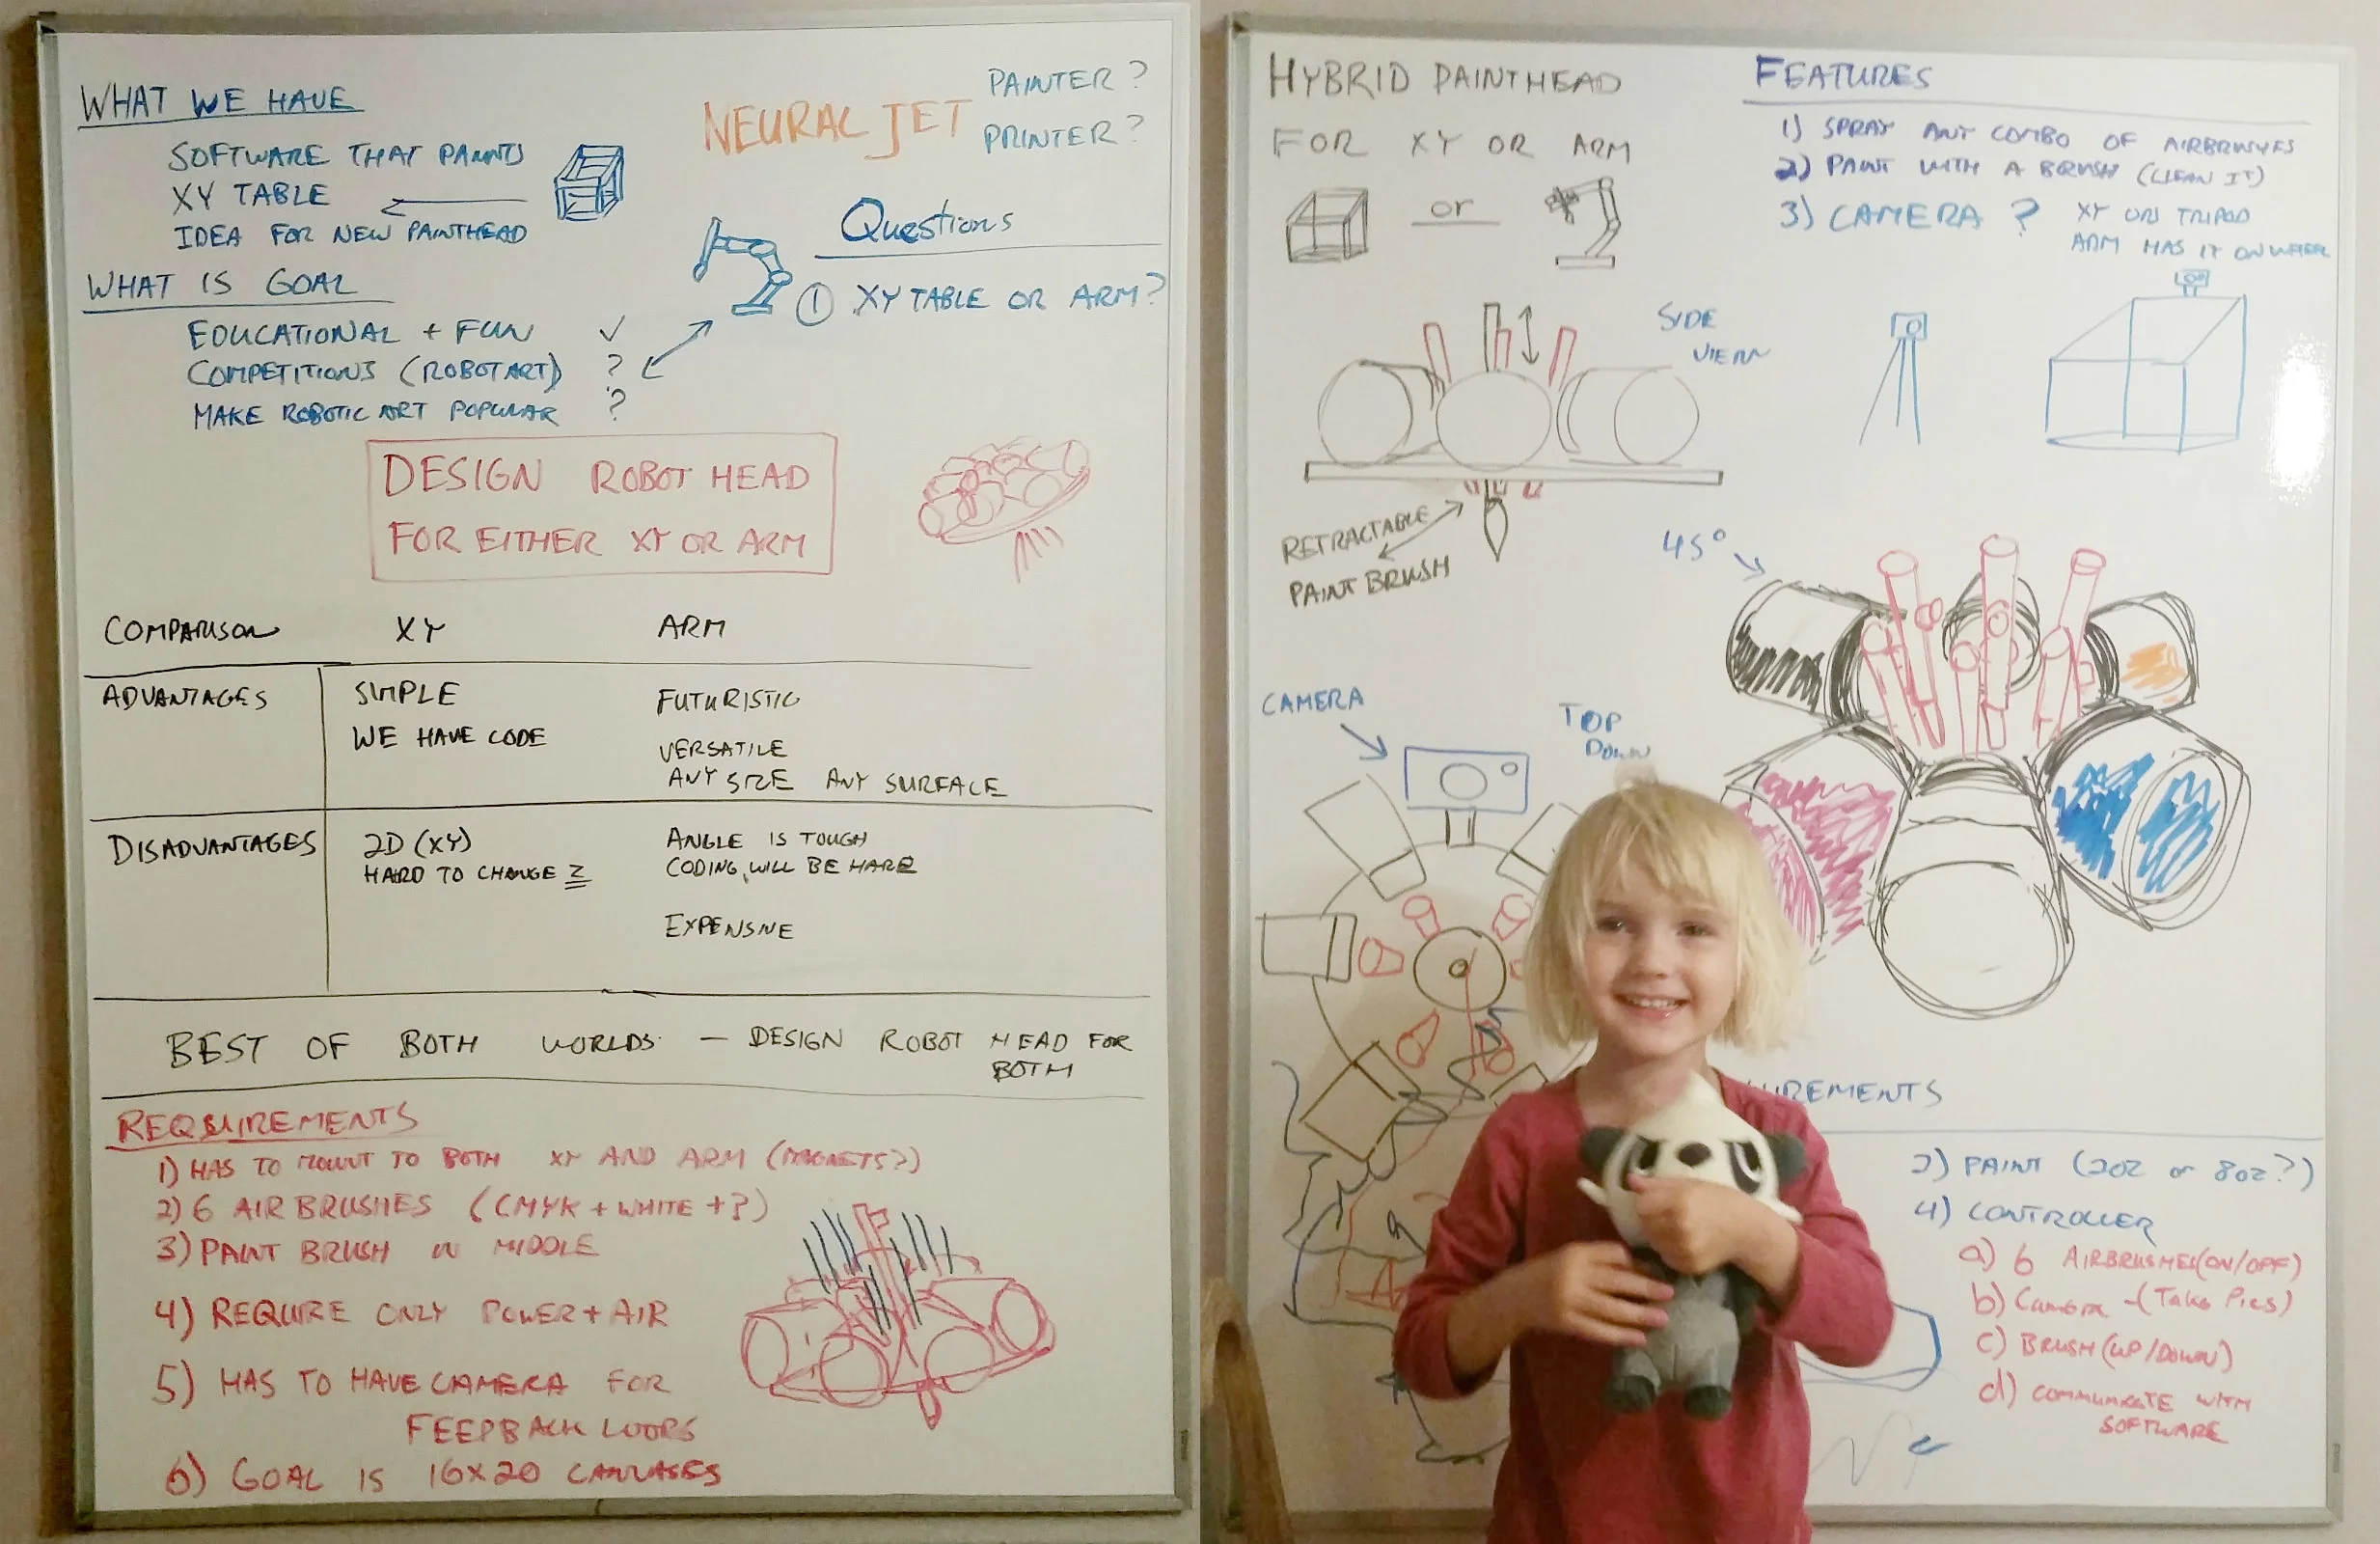 WHAT WE HAVE
SOFTWARE THAT PAINTS
XY TABLE
IDEA FOR NEW PAINTHEAD
NEURAL JET
PAINTER?
PRINTER?
Questions
① XY TABLE OR ARM?
WHAT IS GOAL
EDUCATIONAL + FUN ✓
COMPETITIONS (ROBOTART) ?
MAKE ROBOTIC ART POPULAR ?
DESIGN ROBOT HEAD
FOR EITHER XY OR ARM
COMPARISON XY ARM
ADVANTAGES
SIMPLE
WE HAVE CODE
FUTURISTIC
VERSATILE
ANY SIZE ANY SURFACE
DISADVANTAGES
2D (XY)
HARD TO CHANGE Z
ANGLE IS TOUGH
CODING WILL BE HARD
EXPENSIVE
BEST OF BOTH WORLDS - DESIGN ROBOT HEAD FOR
BOTH
REQUIREMENTS
1) HAS TO MOUNT TO BOTH XY AND ARM (MAGNETS?)
2) 6 AIRBRUSHES (CMYK + WHITE + ?)
3) PAINT BRUSH IN MIDDLE
4) REQUIRE ONLY POWER + AIR
5) HAS TO HAVE CAMERA FOR
FEEPBACK LOOPS
6) GOAL IS 16X20 CANVASES
HYBRID PAINTHEAD
FOR XY OR ARM
or
FEATURES
1) SPRAY ANY COMBO OF AIRBRUSHES
2) PAINT WITH A BRUSH (CLEAN IT)
3) CAMERA ?
XY ON TRIPOD
ARM HAS IT ON
SIDE
VIEW
RETRACTABLE
PAINT BRUSH
45°
CAMERA
TOP
DOWN
UIREMENTS
3) PAINT (2OZ or 8OZ?)
4) CONTROLLER
a) 6 AIRBRUSHES (ON/OFF)
b) Camera - (Take Pics)
c) BRUSH (UP/DOWN)
d) COMMUNICATE WITH
SOFTWARE